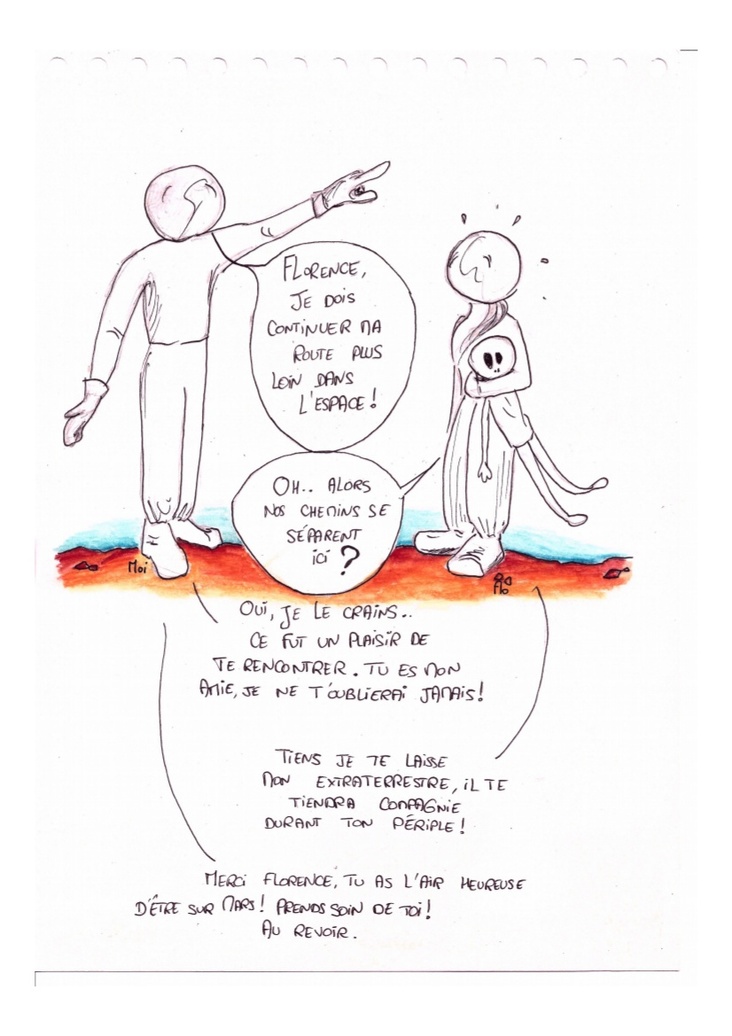 FLORENCE,
JE DOIS
CONTINUER MA
ROUTE PLUS
LOIN DANS
L'ESPACE !
OH.. ALORS
NOS CHEMINS SE
SÉPARENT
ICI ?
Moi
Flo
OUI, JE LE CRAINS..
CE FUT UN PLAISIR DE
TE RENCONTRER. TU ES MON
AMIE, JE NE T'OUBLIERAI JAMAIS !
TIENS JE TE LAISSE
MON EXTRATERRESTRE, IL TE
TIENDRA COMPAGNIE
DURANT TON PÉRIPLE !
MERCI FLORENCE, TU AS L'AIR HEUREUSE
D'ÊTRE SUR MARS ! PRENDS SOIN DE TOI !
AU REVOIR.